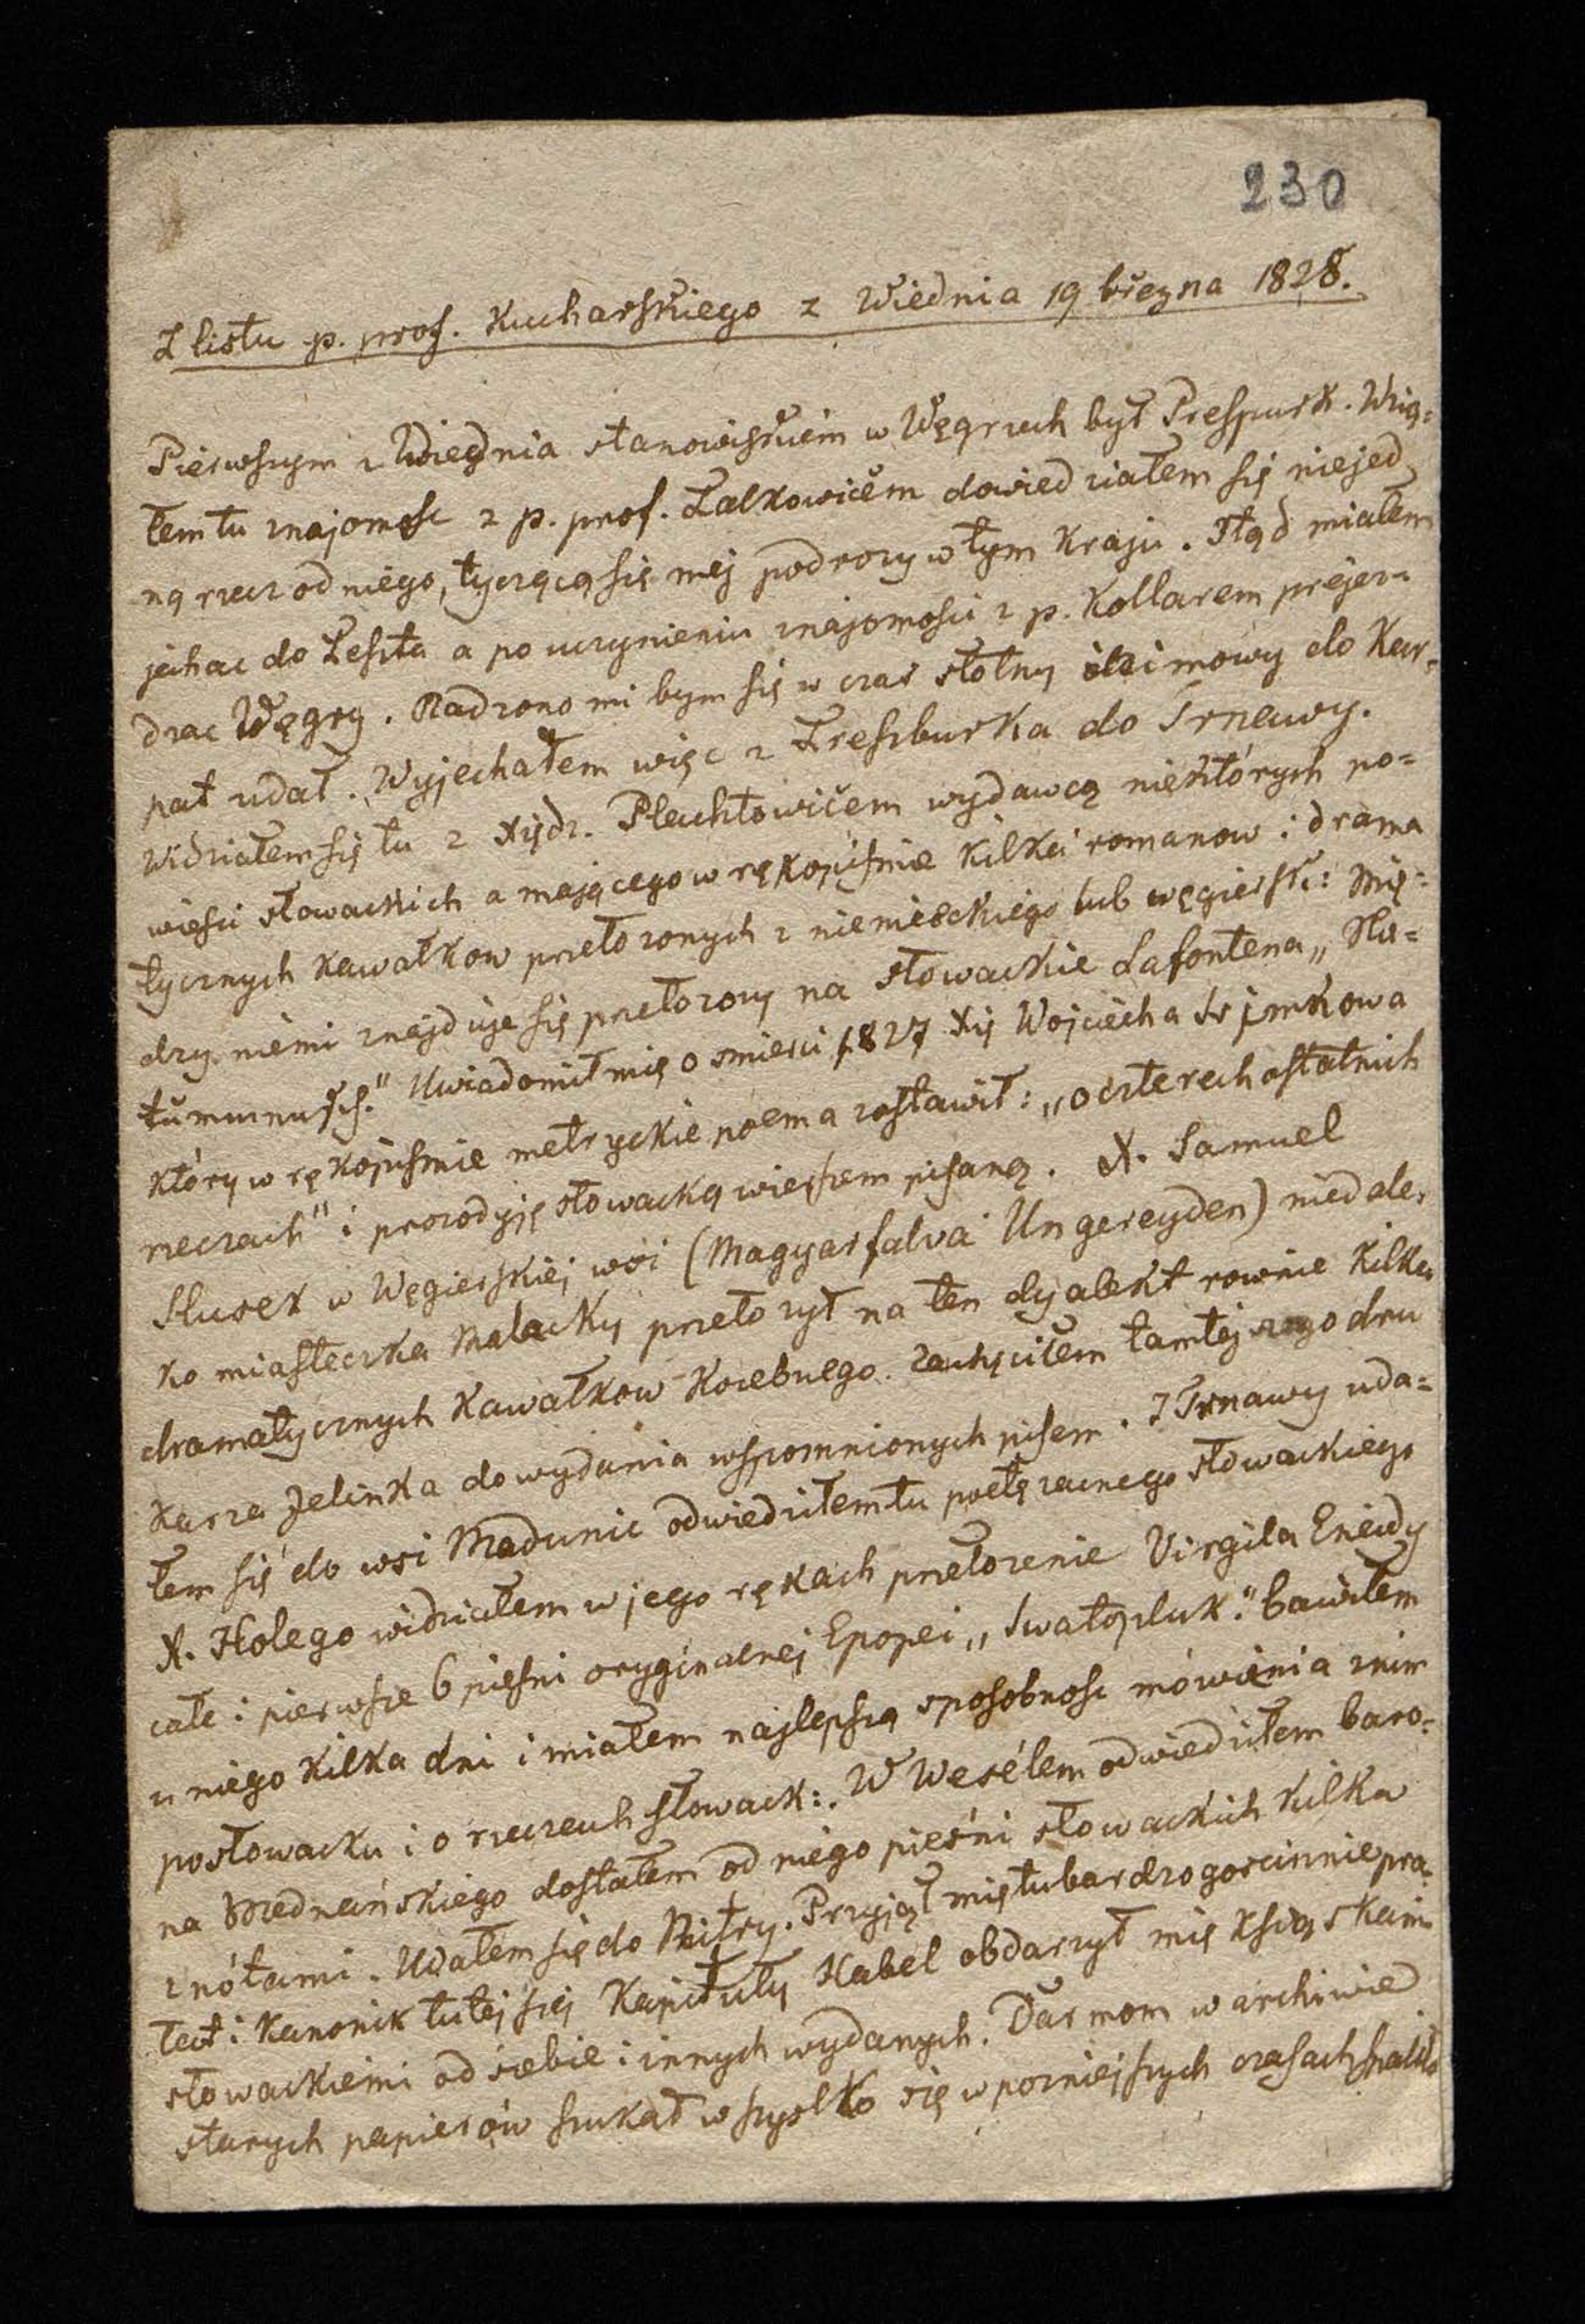 230
Z listu p. prof. Kucharskiego z Wiednia 19 března 1828.
Pierwszym z Wiednia stanowiskiem w Węgrzech był Preszpurk. Wzią=
łem tu znajomosc z p. prof. Palkowičem dowiedziałem się niejed
ną rzecz od niego, tyczącą się mej podrozy w tym kraju. Ztąd miałem
jechac do Pesztu a po uczynieniu znajomosci z p. Kollarem przejez=
dzac Węgry. Radzono mi bym się w czas słotny i zimowy do Kar=
pat udał. Wyjechałem więc z Preszburka do Trnawy.
Widziałem się tu z Xiędz. Plachtowičem wydawcą niektórych po=
wiesci słowackich a mającego w rękopismie kilka romanow i drama
tycznych kawałkow przełozonych z niemieckiego lub węgiersk: Mię=
dzy niemi znajduje się przełozony na słowackie Lafontena „
Uwiadomił mię o smierci 1827 Xię Wojciecha Ssimkowa
który w rękopismie metryckie poema zostawił: „o czterech ostatnich
rzeczach" i prozodyję słowacką wierszem pisaną. X. Samuel
w Węgierskiej wsi (Magyarfalva Ungereyden) niedale=
ko miasteczka Malacky przełozył na ten dyalekt rownie kilka
dramatycznych kawałkow Kocebuego. Zachęciłem tamtejszego dru
karza Jelinka do wydania wspomnionych pisem. Z Trnawy uda=
łem się do wsi Madunic odwiedziłem tu poetę zacnego słowackiego
X. Holego widziałem w jego rękach przełozenie Virgila Eneidy
całe i pierwsze 6 piesni oryginalnej Epopei „Swatopluk." bawiłem
u niego kilka dni i miałem najlepszą sposobnosc mówienia z nim
posłowacku i o rzeczach słowack:. W Wesélem odwiedziłem baro=
na Mednańskiego dostałem od niego pieśni słowackich kilka
z nótami. Udałem się do Nitry. Przyjął mię tu bardzo goscinnie pra=
łat i kanonik tutejszej kapituły Habel obdarzył mię ksiązkami
słowackiemi od siebie i innych wydanych. Darmom w archiwie
starych papierów szukał wszystko się w pozniejszych czasach